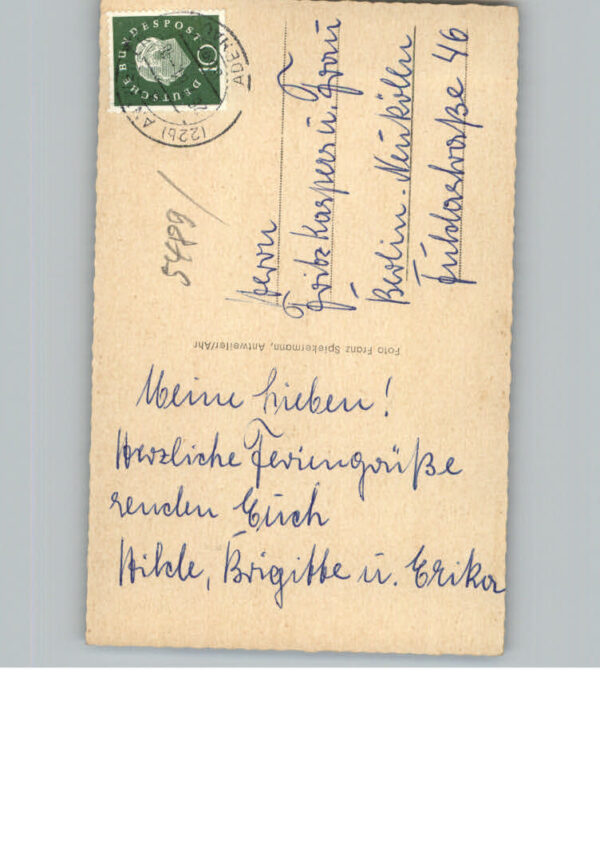 DEUTSCHE BUNDESPOST
10
(22b)
5489
Herrn
Fritz Kaspers u. Frau
Berlin-Neukölln
Fuldastraße 46
Foto Franz Spiekermann, Antweiler/Ahr
Meine Lieben!
Herzliche Feriengrüße
senden Euch
Hilde, Brigitte u. Erika